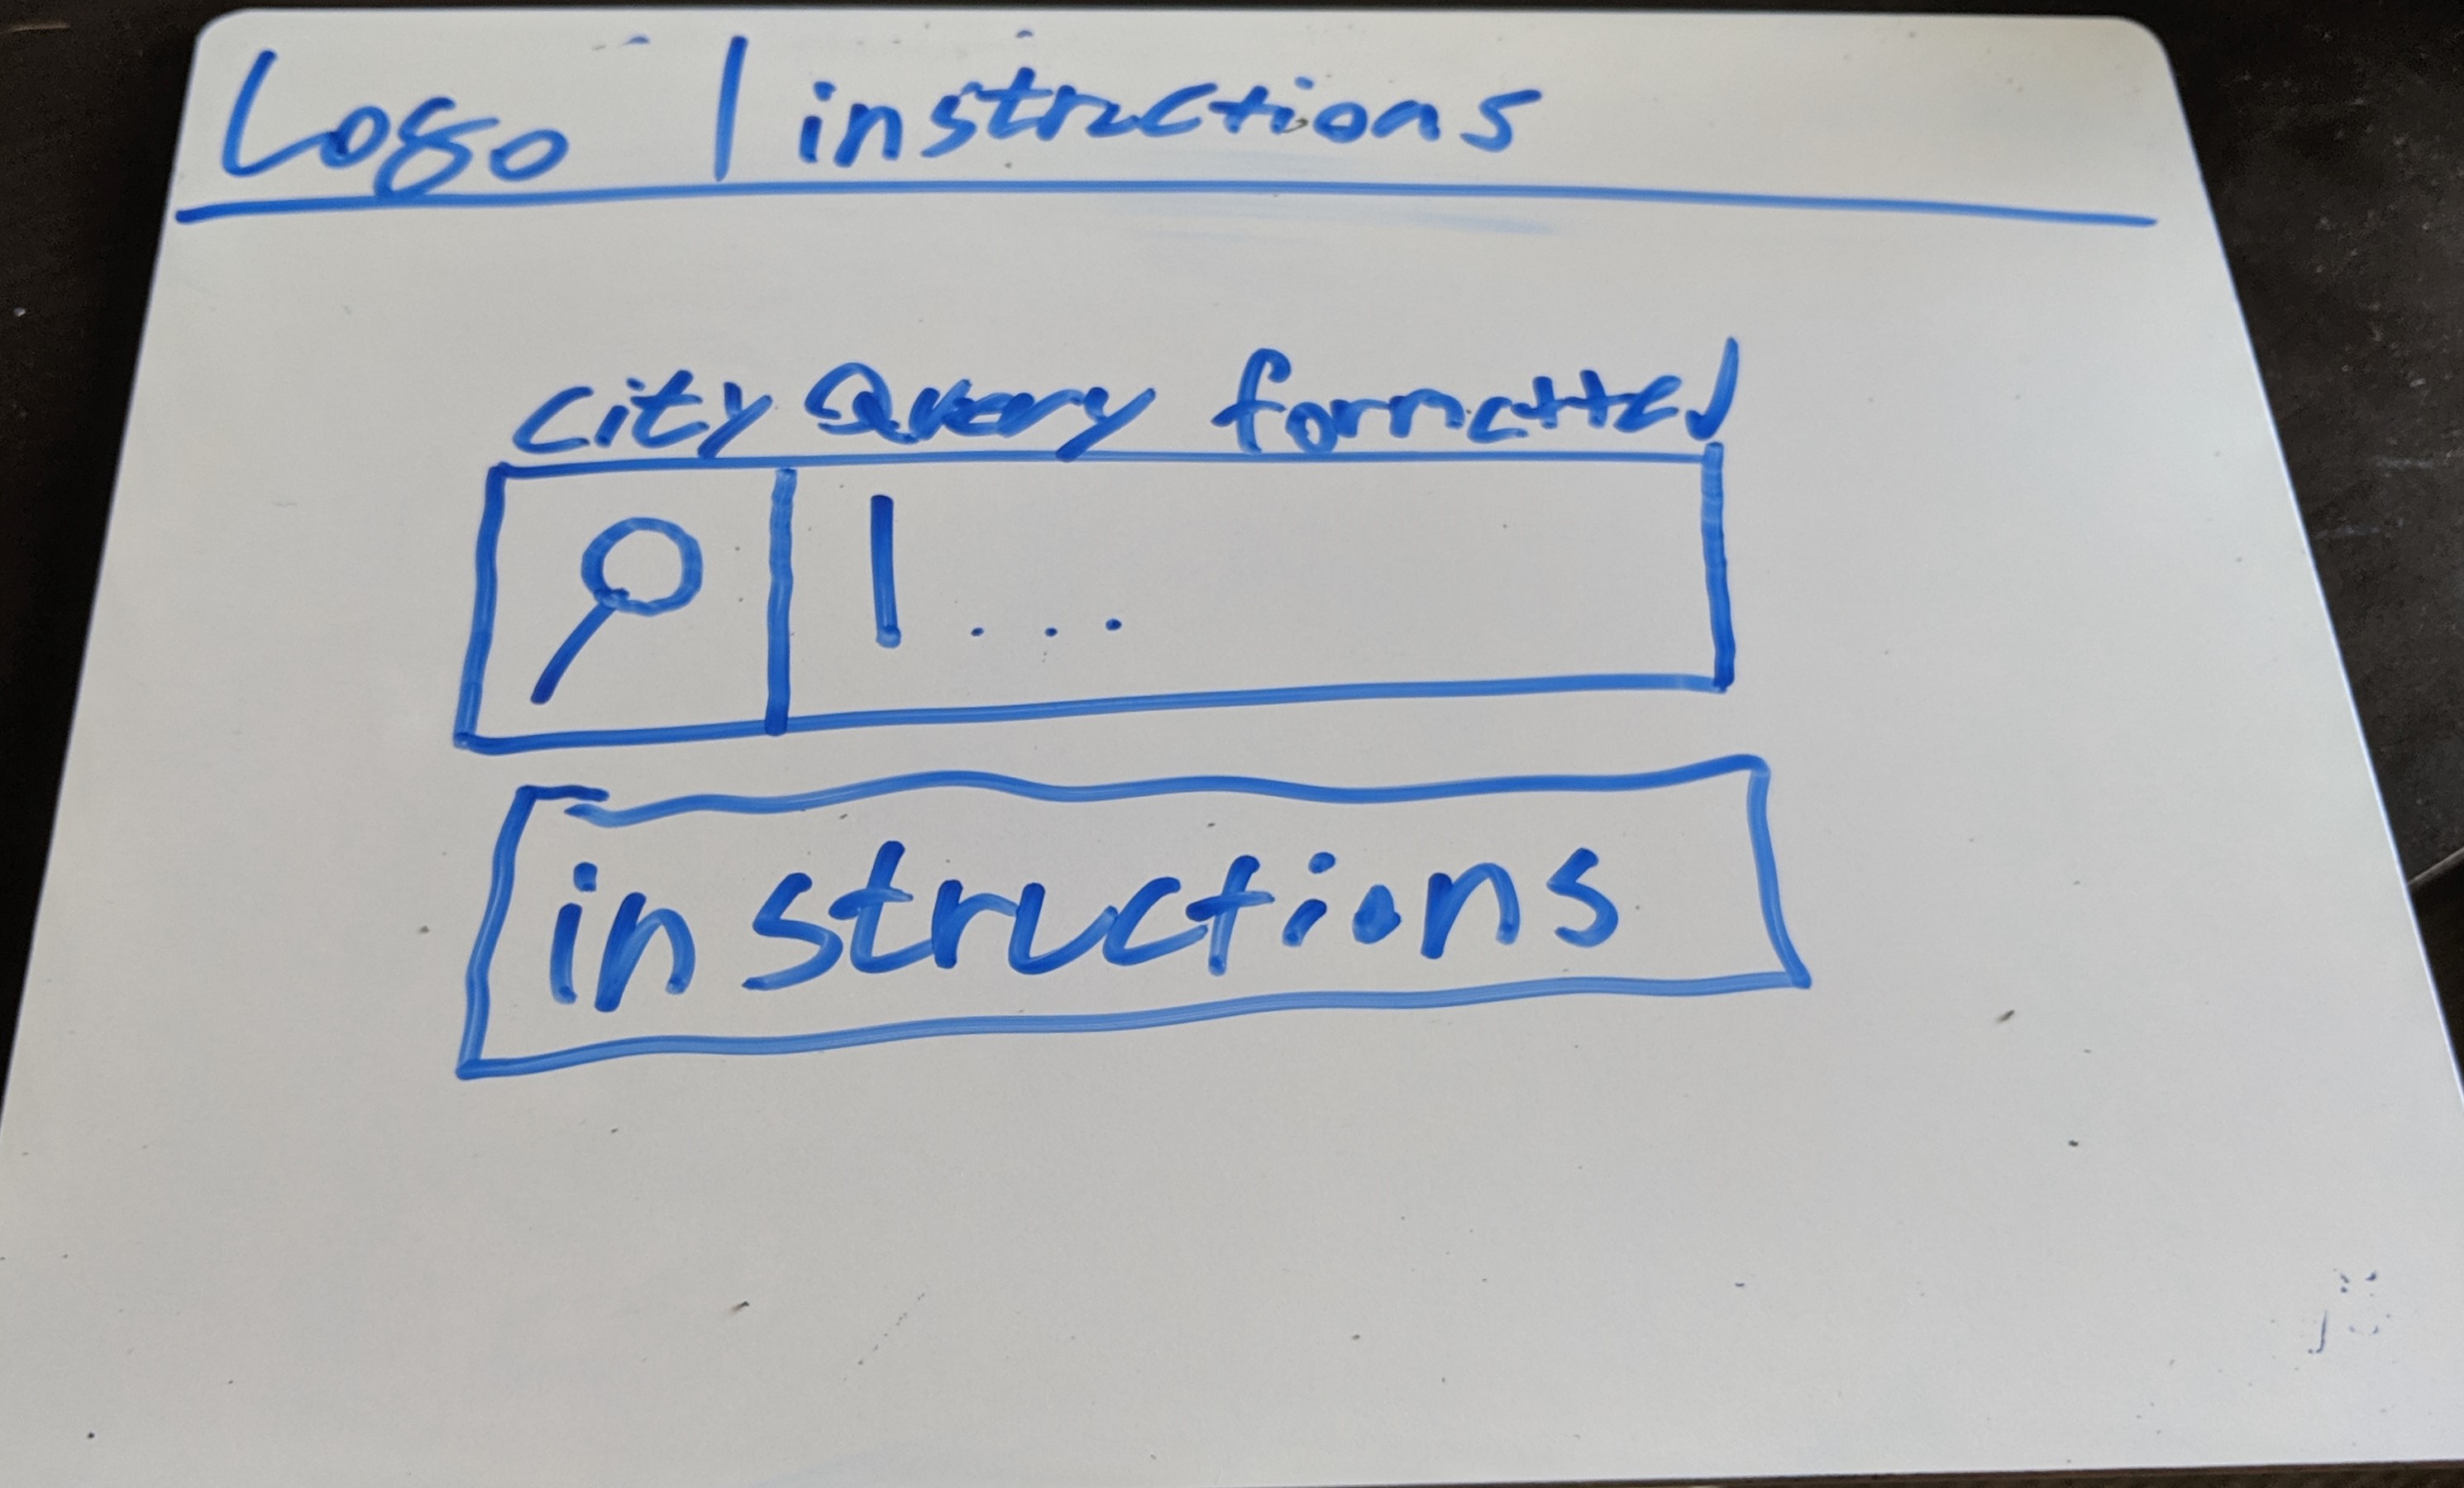 Logo | instructions
city Query formatted
|...
instructions